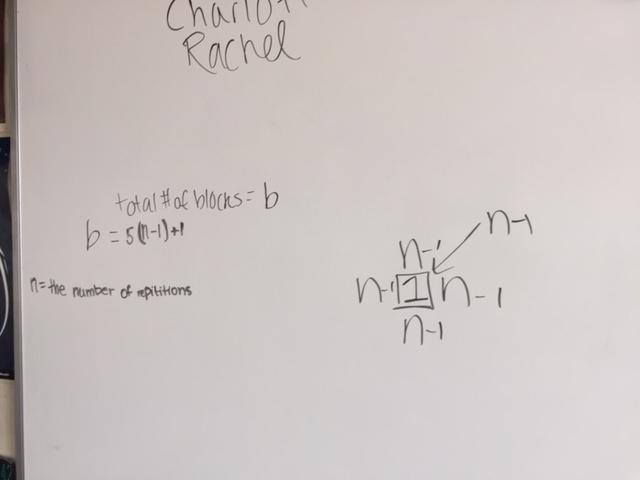 Rachel
total # of blocks = b
b = 5(n-1)+1
n= the number of repititions
n-1
n-1
n-1 1 n-1
n-1